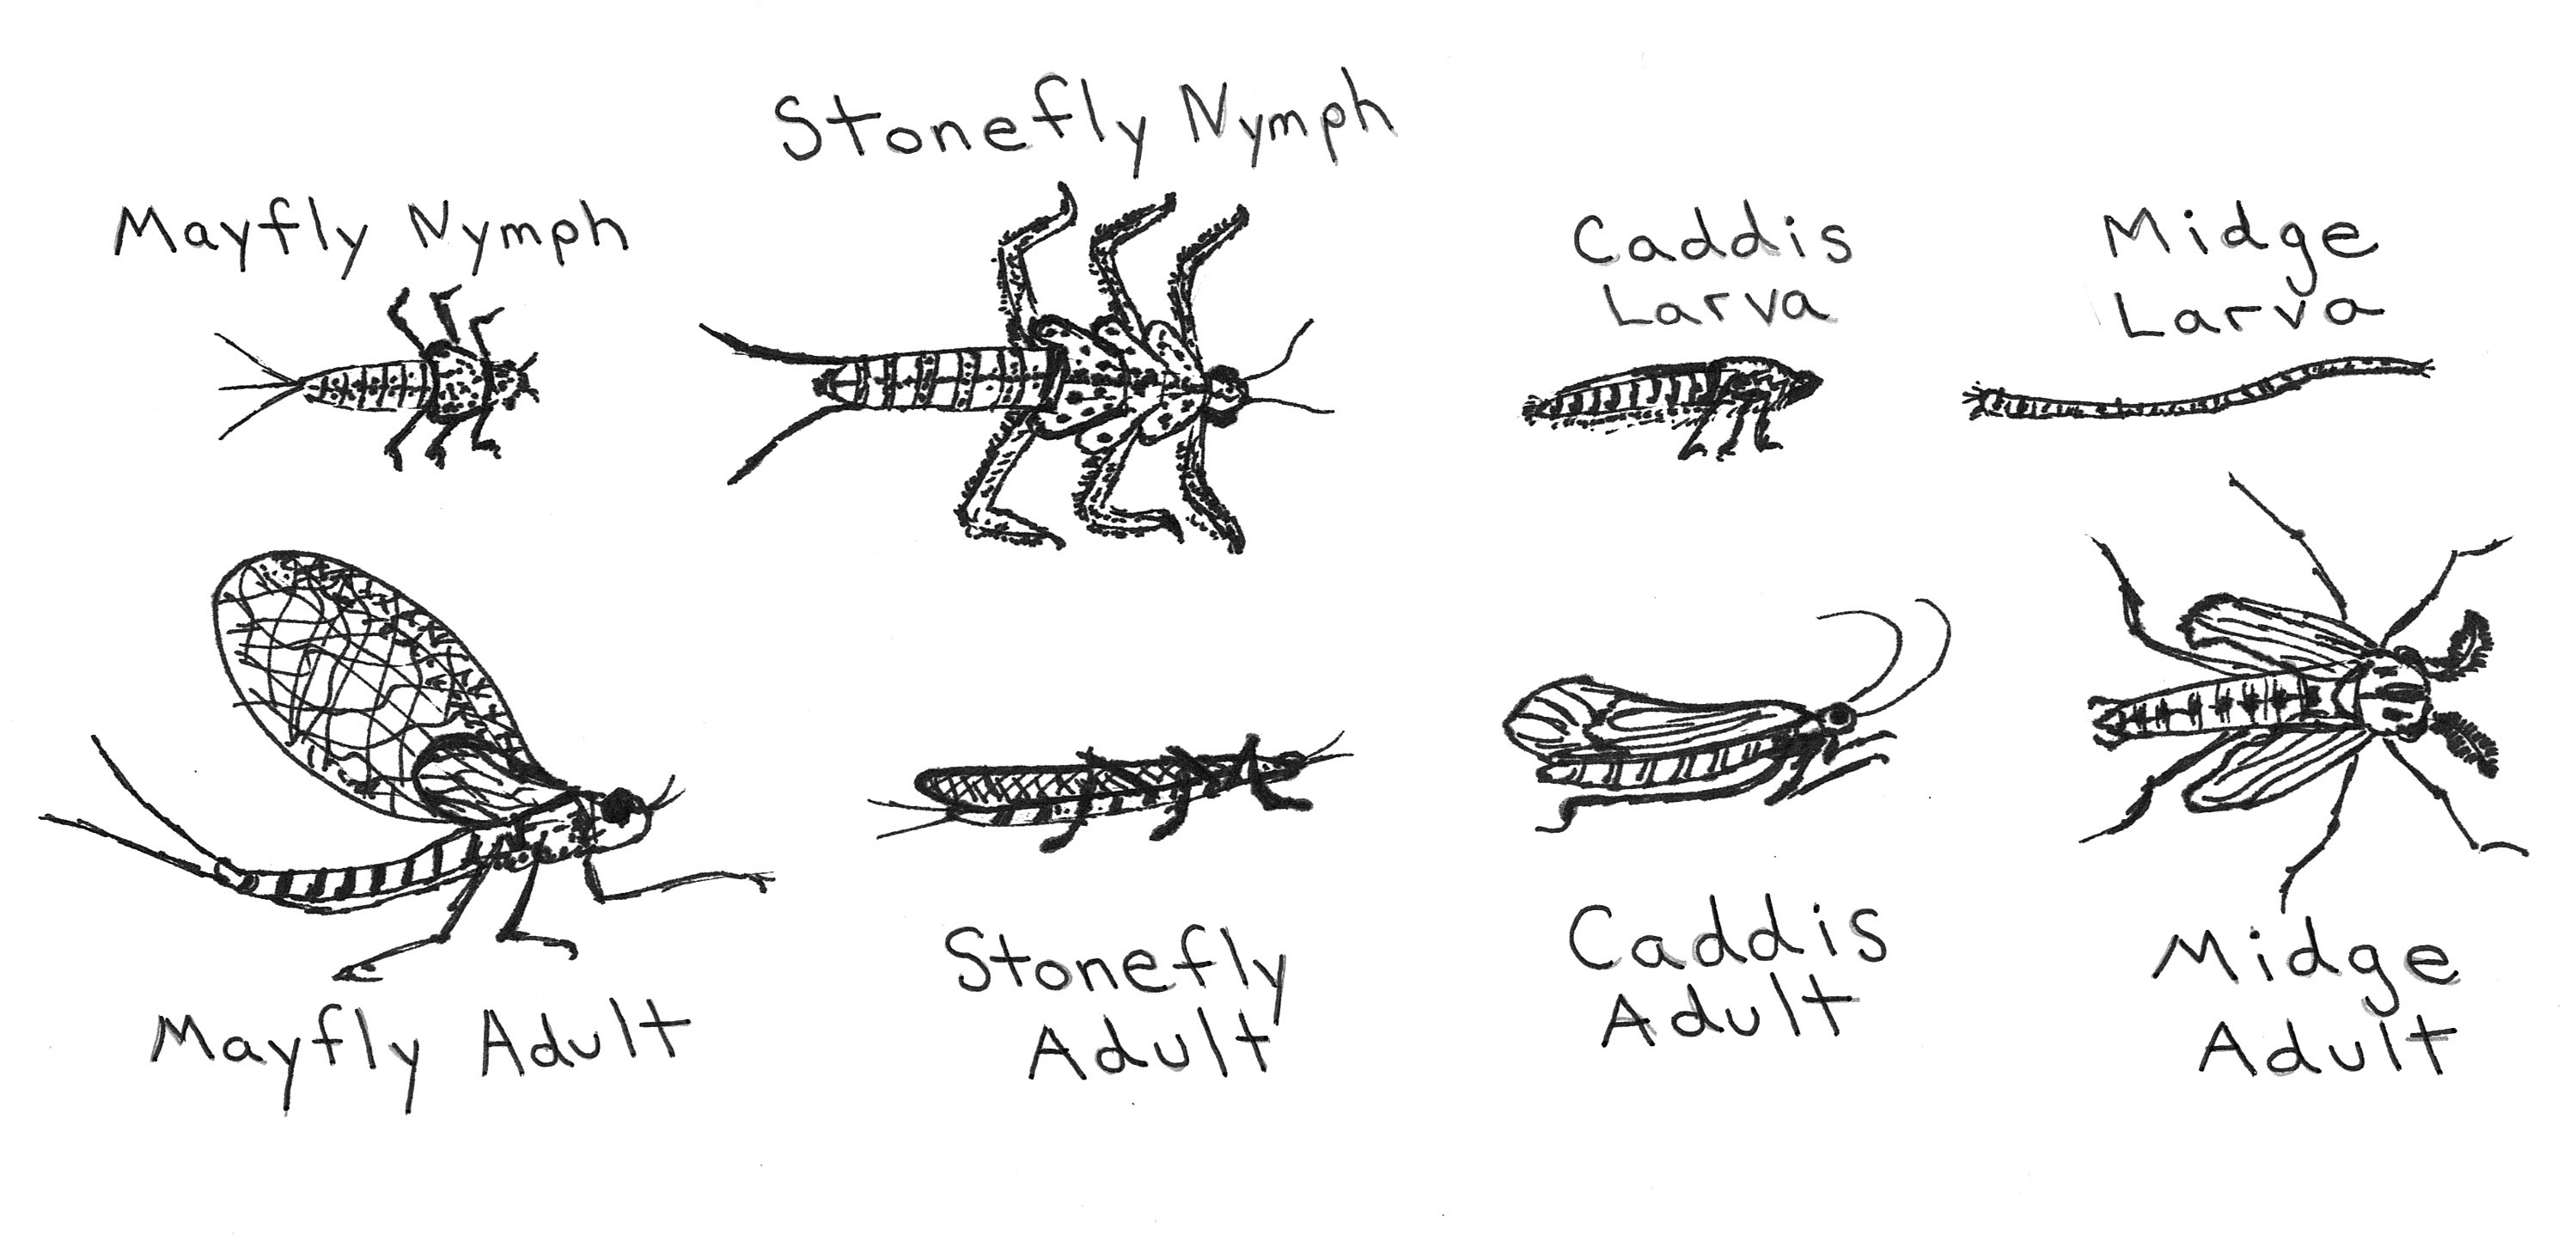 Stonefly Nymph
Mayfly Nymph
Caddis
Larva
Midge
Larva
Mayfly Adult
Stonefly
Adult
Caddis
Adult
Midge
Adult